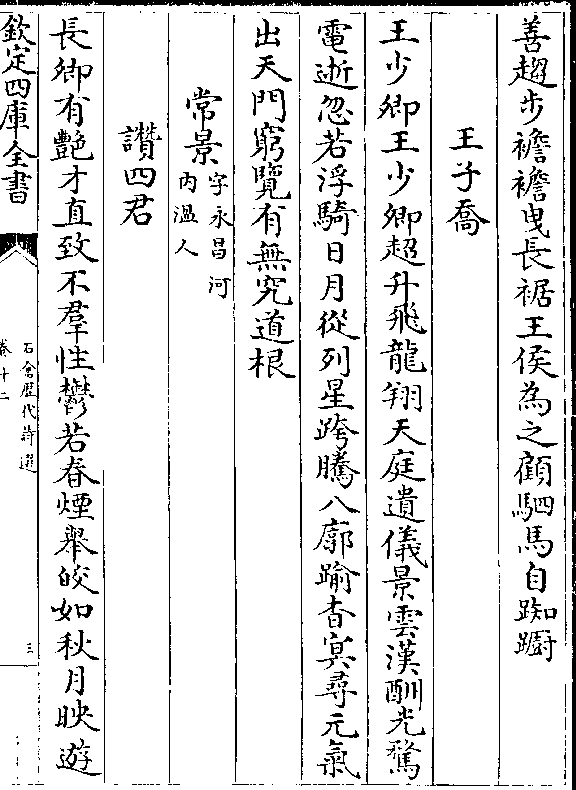 善趨步襜襜曳長裾王侯為之顧駟馬自踟躕
王子喬
王少卿王少卿超升飛龍翔天庭遺儀景雲漢酬光騖
電逝忽若浮騎日月從列星跨騰八廓踰杳冥尋元氣
出天門窮覽有無究道根
常景字永昌河
内溫人
讚四君
長卿有艷才直致不羣性鬱若春煙舉皎如秋月映遊
欽定四庫全書
石倉歴代詩選
卷十二
三